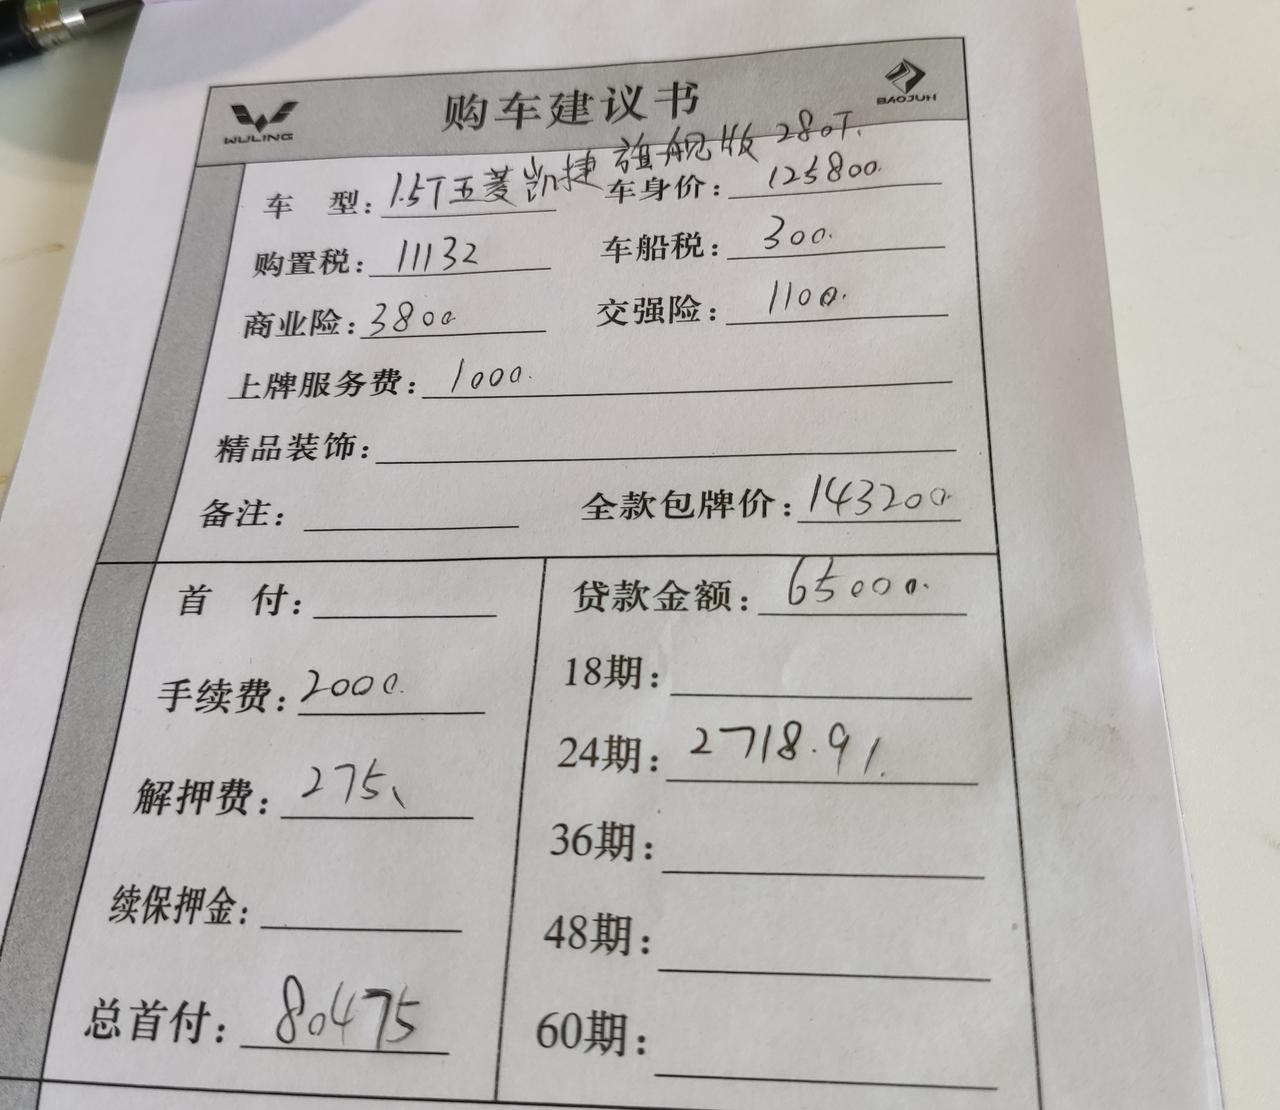 WULING
购车建议书
BAOJUN
车 型：1.5T五菱凯捷 旗舰版 280T. 车身价：125800.
购置税：11132 车船税：300.
商业险：3800 交强险：1100.
上牌服务费：1000.
精品装饰：
备注： 全款包牌价：143200.
首 付： 贷款金额：65000.
18期：
手续费：2000. 24期：2718.91.
解押费：275、 36期：
续保押金： 48期：
总首付：80475 60期：